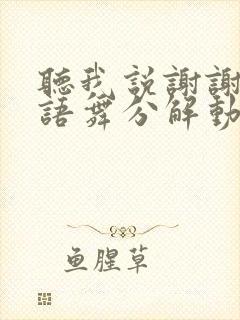 聽我説謝謝
語舞分解動
鱼腥草